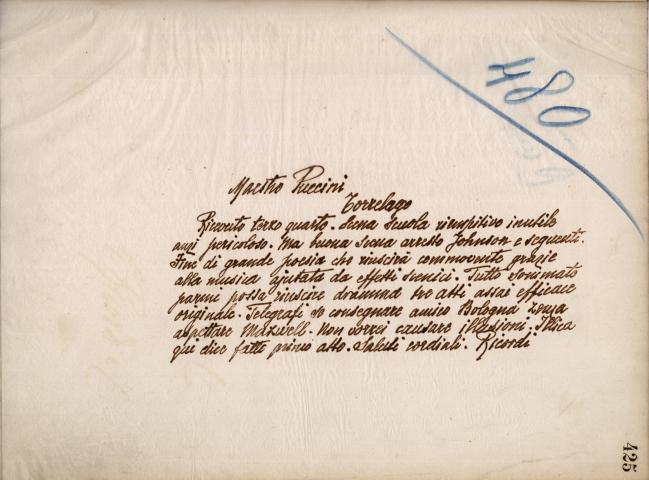 480
Maestro Puccini
Torrelago
Ricevuto terzo quarto. Scena scuola riempitivo inutile
anzi pericoloso. Ma buona scena arresto Johnson e seguenti.
Fine di grande poesia che riuscirà commovente grazie
alla musica ajutata da effetti scenici. Tutto sommato
parmi possa riuscire dramma tre atti assai efficace
originale. Telegrafi se consegnare amico Bologna senza
aspettare Maxwell. Non vorrei causare illusioni. Illica
qui dice fatto primo atto. Saluti cordiali. Ricordi
425